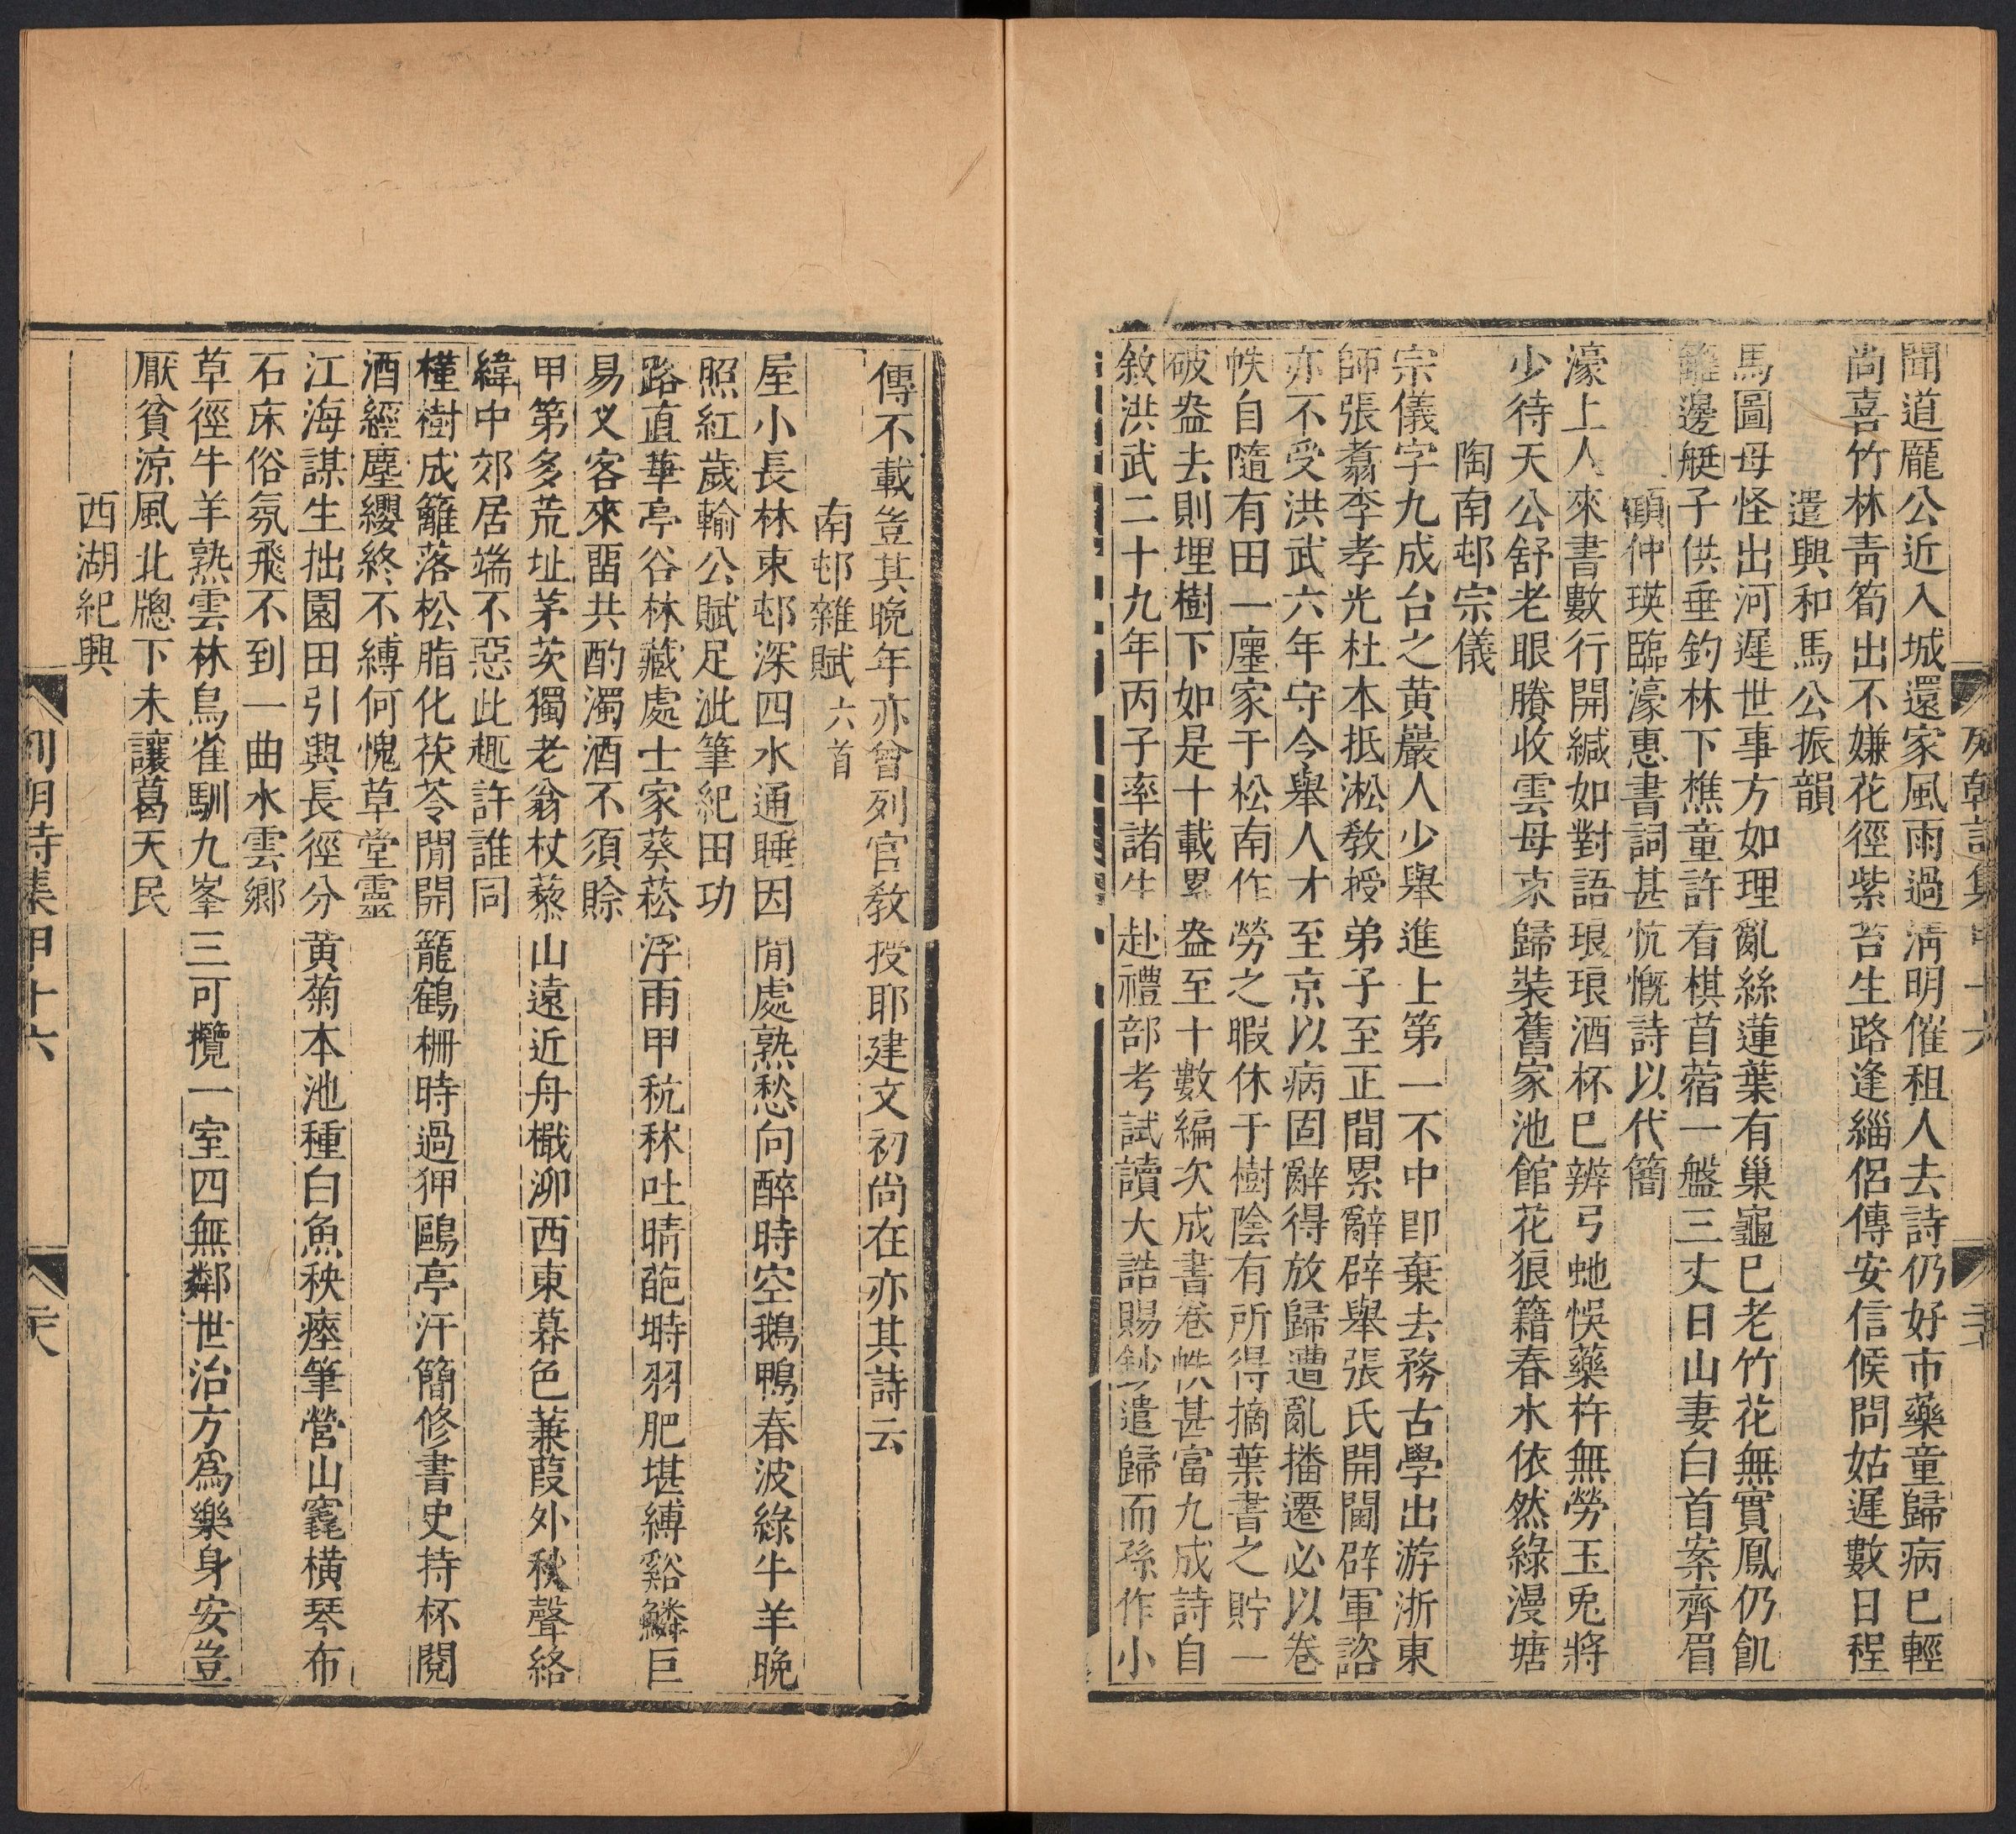 聞道龐公近入城還家風雨過淸明催租人去詩仍好市藥童歸病巳輕
尚喜竹林靑筍出不嫌花徑紫苔生路逢緇侶傳安信候問姑遲數日程
遣興和馬公振韻
馬圖毋怪出河遲世事方如理亂絲蓮葉有巢龜巳老竹花無實鳳仍飢
籬邊艇子供垂釣林下樵童許看棋苜蓿一盤三丈日山妻白首案齊眉
顧仲瑛臨濠惠書詞甚忼慨詩以代簡
濠上人來書數行開緘如對語琅琅酒杯巳辨弓虵悞藥杵無勞玉兎將
少待天公舒老眼賸收雲母束歸裝舊家池館花狼籍春水依然綠漫塘
陶南邨宗儀
宗儀字九成台之黄巖人少舉進上第一不中卽棄去務古學出游浙東
師張翥李孝光杜本抵淞敎授弟子至正間累辭辟舉張氏開閫辟軍諮
亦不受洪武六年守令舉人才至京以病固辭得放歸遭亂播遷必以卷
帙自隨有田一廛家于松南作勞之暇休于樹陰有所得摘葉書之貯一
破盎去則埋樹下如是十載累盎至十數編次成書卷帙甚富九成詩自
敘洪武二十九年丙子率諸生赴禮部考試讀大誥賜鈔遣歸而孫作小
傳不載豈其晚年亦曾列官敎授耶建文初尚在亦其詩云
南邨雜賦六首
屋小長林東邨深四水通睡因閒處熟愁向醉時空鵝鴨春波綠牛羊晚
照紅歲輸公賦足泚筆紀田功
路直華亭谷林藏處士家葵菘浮雨甲秔秫吐晴葩塒羽肥堪縛谿鱗巨
易叉客來畱共酌濁酒不須賒
甲第多荒址茅茨獨老翁杖藜山遠近舟檝泖西東暮色蒹葭外秋聲絡
緯中郊居端不惡此趣許誰同
槿樹成籬落松脂化茯苓閒開籠鶴栅時過狎鷗亭汗簡修書史持杯閱
酒經塵纓終不縛何愧草堂靈
江海謀生拙園田引興長徑分黄菊本池種白魚秧瘞筆營山竁橫琴布
石床俗氛飛不到一曲水雲鄉
草徑牛羊熟雲林鳥雀馴九峯三可攬一室四無鄰世治方爲樂身安豈
厭貧凉風北牕下未讓葛天民
西湖紀興
列朝詩集甲十六